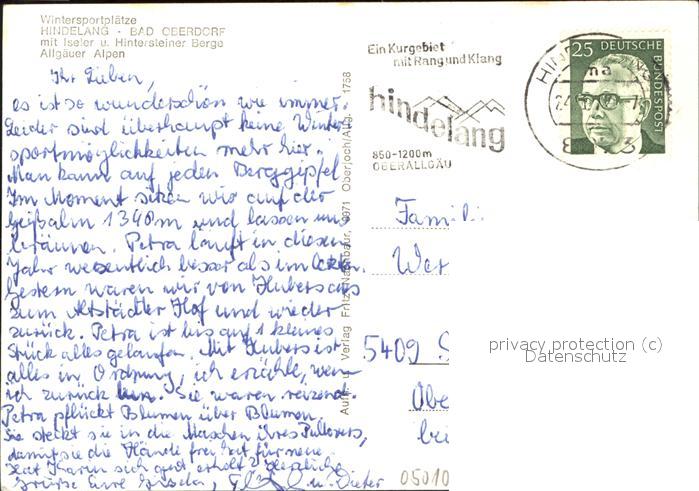 Wintersportplätze
HINDELANG - BAD OBERDORF
mit Iseler u. Hintersteiner Berge
Allgäuer Alpen
Ihr Lieben,
es ist so wunderschön wie immer.
Leider sind überhaupt keine Winter
sportmöglichkeiten mehr hier.
Man kann auf jeden Berggipfel
Im Moment sitzen wir auf der
Geißalm 1340m und lassen uns
bräunen. Petra läuft in diesem
Jahr wesentlich besser als im letzten.
Gestern waren wir von Hubers aus
zum Altstädter Hof und wieder
zurück. Petra ist bis auf 1 kleines
Stück alles gelaufen. Mit Hubers ist
alles in Ordnung, ich erzähle, wenn
ich zurück bin. Sie waren reizend.
Petra pflückt Blumen über Blumen.
Sie steckt sie in die Maschen ihres Pullovers,
damit sie die Hände frei hat für neue.
Hat Karin sich gut erholt? Herzliche
Grüße Eure Gisela, u. Dieter
Verlag Fritz 8971 Oberjoch/Allg. 1758
Ein Kurgebiet
mit Rang und Klang
hindelang
850-1200m
OBERALLGÄU
25 DEUTSCHE
BUNDESPOST
HIN
na
Famili
Wer
5409 S
Obe
bei
privacy protection (c)
Datenschutz
05010